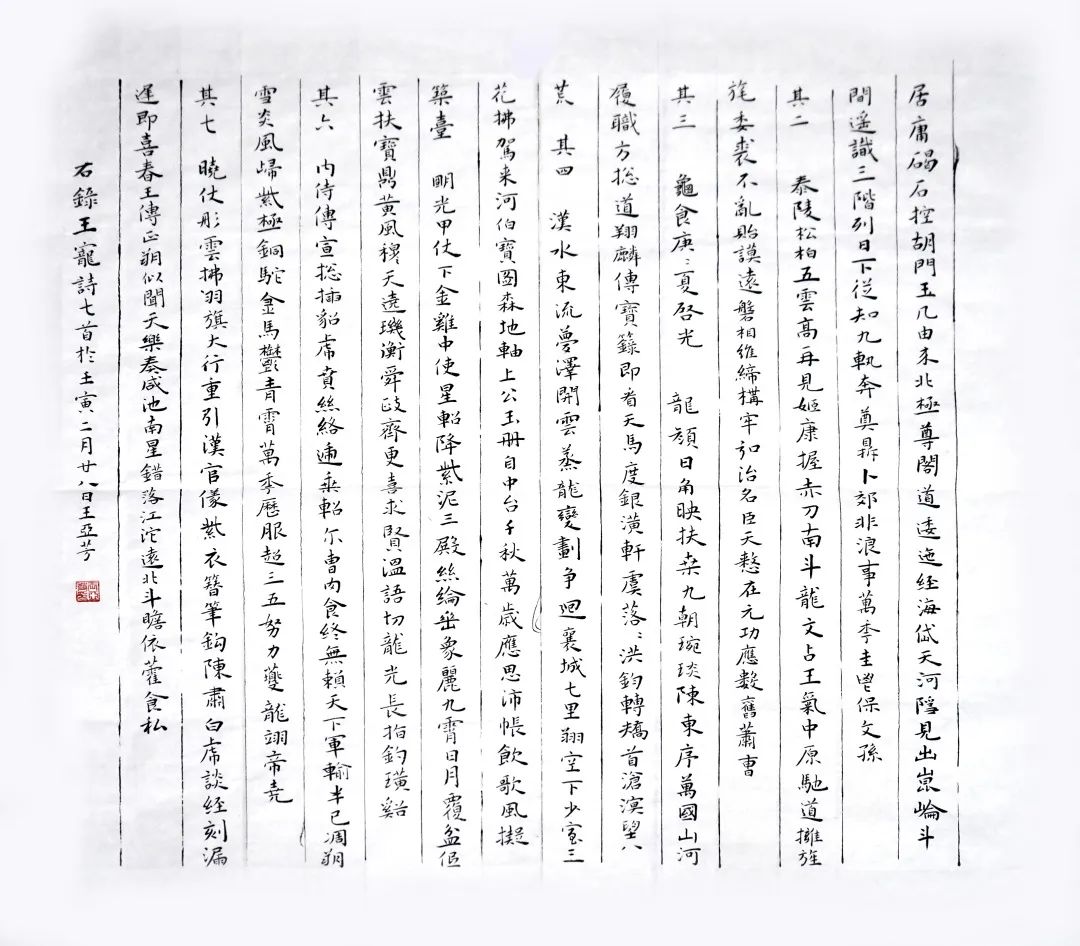 居庸碣石控胡門玉几由来北極尊閣道逶迤経海岱天河隠見出崑崙斗
間遥識三階列日下従知九軌奔奠鼎卜郊非浪事萬季圭鬯保文孫
其二 泰陵松柏五雲高再見姬康握赤刀南斗龍文占王氣中原馳道擁旌
旄委裘不亂貽謨遠磐相維締構牢弘治名臣天憗在元功應數舊蕭曹
其三 龜食庚〻夏啓光 龍顔日角映扶桒九朝琬琰陳東序萬國山河
履職方捴道翔麟傳寶籙即看天馬度銀潢軒虞落〻洪鈞轉矯首滄溟望八
荒 其四 漢水東流夢澤開雲蒸龍變劃争迴襄城七里翔空下少室三
花拂駕来河伯寶圖森地軸上公玉册自中台千秋萬歲應思沛帳飲歌風擬
築臺 明光甲仗下金雞中使星軺降紫泥三殿絲綸垂象麗九霄日月覆盆低
雲扶寶鼎黄風穆天遶璣衡舜政齊更喜求賢溫語切龍光長指釣璜谿
其六 内侍傳宣捴插貂虎賁絲絡逓乗軺尔曹肉食終無賴天下軍輸半已凋朔
雪炎風歸紫極銅駝金馬鬱青霄萬季歷服超三五努力夔龍翊帝堯
其七 曉仗彤雲拂羽旗大行重引漢官儀紫衣簪筆鈎陳肅白虎談経刻漏
遲即喜春王傳正朔似聞天樂奏咸池南星錯落江沱遠北斗瞻依藿食私
右錄王寵詩七首於壬寅二月廿八日王亞芳